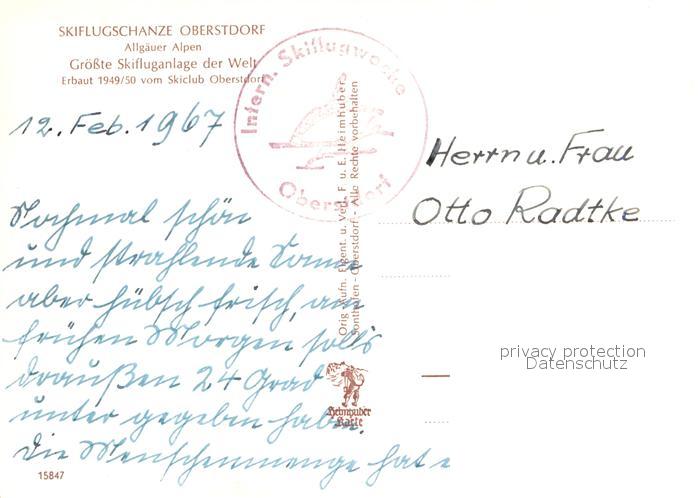 SKIFLUGSCHANZE OBERSTDORF
Allgäuer Alpen
Größte Skifluganlage der Welt
Erbaut 1949/50 vom Skiclub Oberstdorf
Intern. Skiflugwoche
Oberstdorf
12. Feb. 1967
Herrn u. Frau
Otto Radtke
Nochmal schön
und strahlende Sonne
aber hübsch frisch, am
frühen Morgen solls
draußen 24 Grad
unter gegeben haben.
Die Menschenmenge hat
Orig. Aufn. Eigent. u. Verl. F. u. E. Heimhuber
Sonthofen-Oberstdorf - Alle Rechte vorbehalten
Heimhuber
Karte
privacy protection
Datenschutz
15847